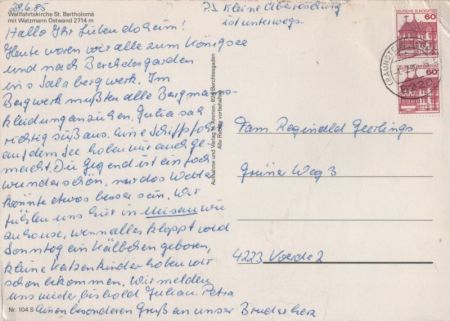 28.6.85
Wallfahrtskirche St. Bartholomä
mit Watzmann Ostwand 2714 m
Hallo Ihr Lieben daheim!
Heute waren wir alle zum Königsee
und nach Berchdesgarden
ins Salzbergwerk. Im
Bergwerk mußten alle Bergmanns-
kleidung anziehen, Julia sah
richtig süß aus. Eine Schiffsfahrt
auf dem See haben wir auch ge-
macht. Die Gegend ist einfach
wunderschön, nur das Wetter
könnte etwas besser sein. Wir
fühlen uns hier in wie
zuhause, wenn alles klappt wird
Sonntag ein Kälbchen geboren,
kleine Katzenkinder haben wir
schon bekommen. Wir melden
uns wieder bis bald Julian Petra
Einen besonderen Gruß an unser Bruderherz
Nr. 104 S
PS Kleine Überraschung
ist unterwegs.
60
60
Fam. Reginald Geerlings
Grüner Weg 3
4223 Voerde 2